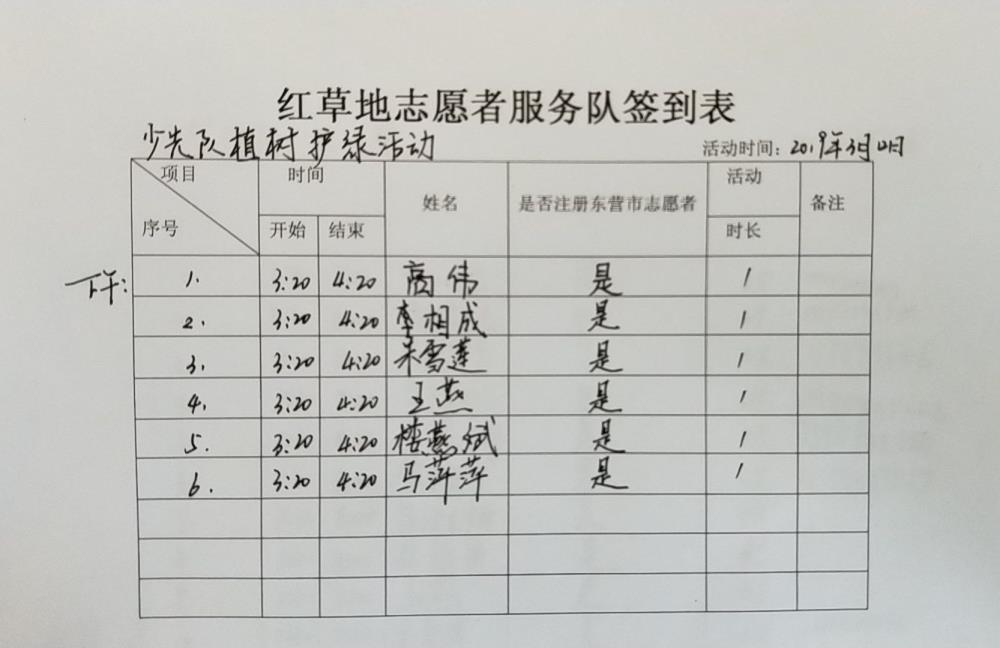 红草地志愿者服务队签到表
少先队植树护绿活动 活动时间：2019年3月12日
项目 时间 姓名 是否注册东营市志愿者 活动 备注
序号 开始 结束 时长
下午： 1. 3:20 4:20 商伟 是 1
2. 3:20 4:20 李相成 是 1
3. 3:20 4:20 朱雪莲 是 1
4. 3:20 4:20 王燕 是 1
5. 3:20 4:20 楼燕斌 是 1
6. 3:20 4:20 马萍萍 是 1